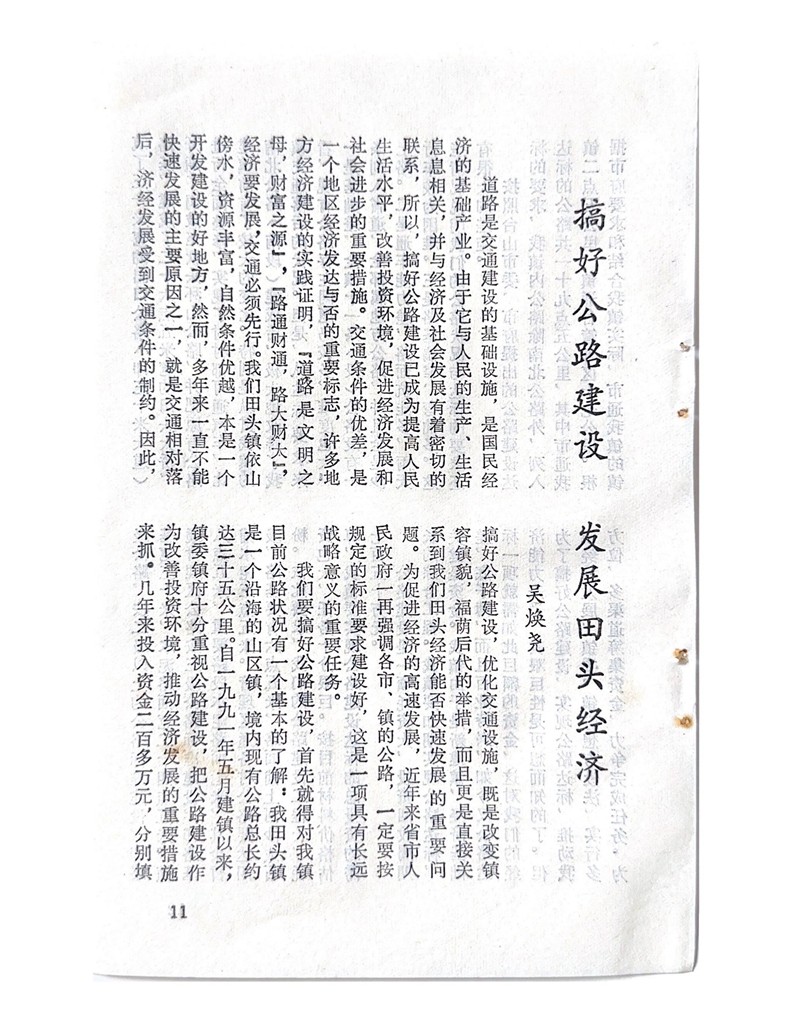 搞好公路建设　发展田头经济
吴焕尧
道路是交通建设的基础设施，是国民经
济的基础产业。由于它与人民的生产、生活
息息相关，并与经济及社会发展有着密切的
联系，所以，搞好公路建设已成为提高人民
生活水平，改善投资环境，促进经济发展和
社会进步的重要措施。交通条件的优差，是
一个地区经济发达与否的重要标志，许多地
方经济建设的实践证明，『道路是文明之
母，财富之源』，『路通财通，路大财大』，
经济要发展，交通必须先行。我们田头镇依山
傍水，资源丰富，自然条件优越，本是一个
开发建设的好地方，然而，多年来一直不能
快速发展的主要原因之一，就是交通相对落
后，济经发展受到交通条件的制约。因此，
搞好公路建设，优化交通设施，既是改变镇
容镇貌，福荫后代的举措，而且更是直接关
系到我们田头经济能否快速发展的重要问
题。为促进经济的高速发展，近年来省市人
民政府一再强调各市、镇的公路，一定要按
规定的标准要求建设好，这是一项具有长远
战略意义的重要任务。
我们要搞好公路建设，首先就得对我镇
目前公路状况有一个基本的了解：我田头镇
是一个沿海的山区镇，境内现有公路总长约
达三十五公里。自一九九一年五月建镇以来，
镇委镇府十分重视公路建设，把公路建设作
为改善投资环境，推动经济发展的重要措施
来抓。几年来投入资金二百多万元，分别填
11